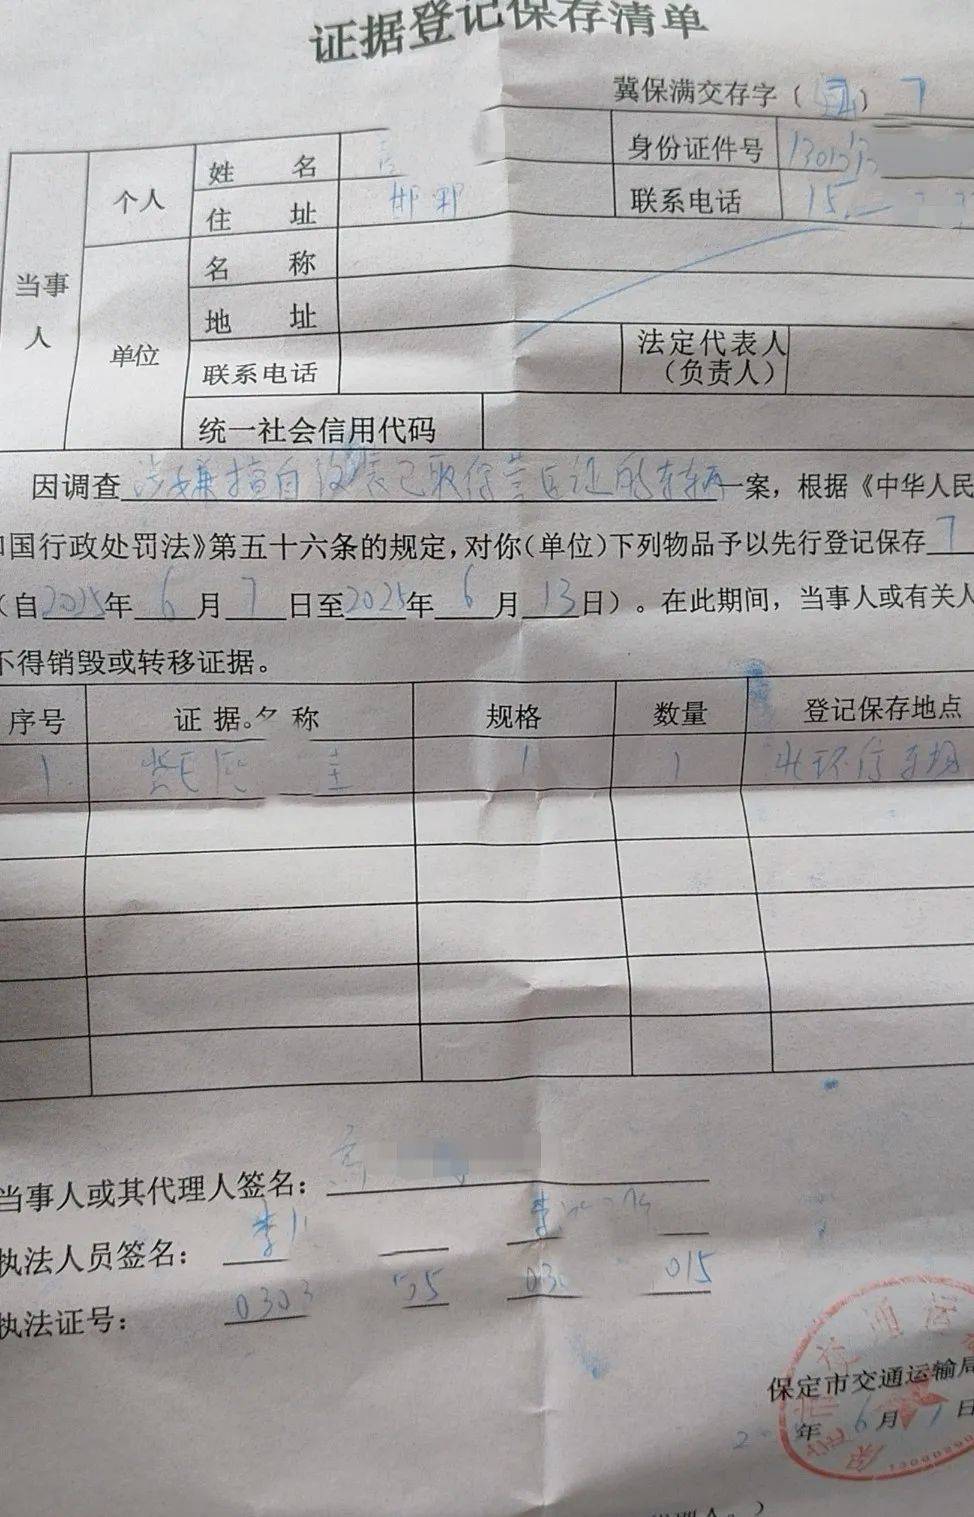 证据登记保存清单
冀保满交存字（ ）7
当事人
个人
姓 名
身份证件号
住 址 邯郸
联系电话 15
单位
名 称
地 址
联系电话
法定代表人（负责人）
统一社会信用代码
因调查涉嫌擅自 已取得营运证的车辆一案，根据《中华人民
国行政处罚法》第五十六条的规定，对你（单位）下列物品予以先行登记保存7
（自2025年6月7日至2025年6月13日）。在此期间，当事人或有关人
不得销毁或转移证据。
序号 证据名称 规格 数量 登记保存地点
1 1 1 北环停车场
当事人或其代理人签名：
执法人员签名：李 李
执法证号：0303 030 015
保定市交通运输局
年6月 日